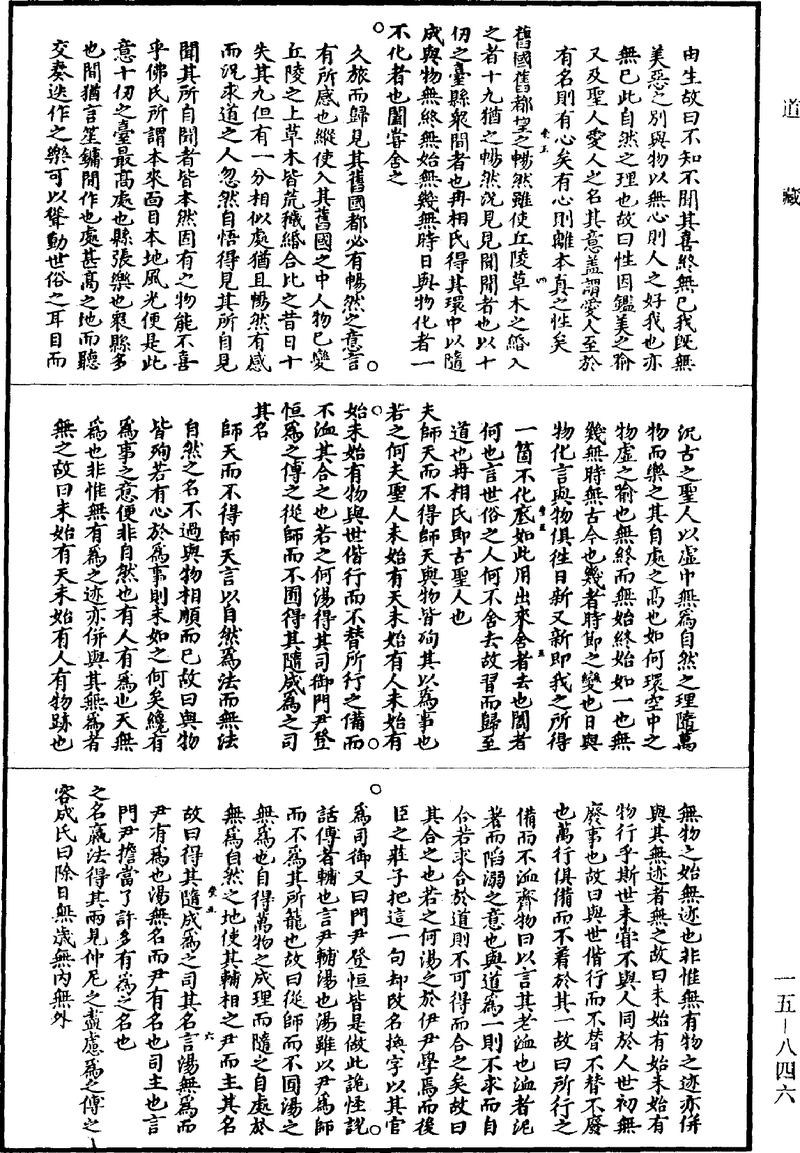 道藏
由生故曰不知不聞其喜終無已我既無
美惡之別與物以無心則人之好我也亦
無已此自然之理也故曰性因鑑美之喻
又及聖人愛人之名其意蓋謂愛人至於
有名則有心矣有心則離本真之性矣
舊國舊都望之暢然雖使丘陵草木之緡入
之者十九猶之暢然況見見聞聞者也以十
仞之臺縣眾間者也冉相氏得其環中以隨
成與物無終無始無幾無時日與物化者一
不化者也闔嘗舍之
久旅而歸見其舊國都必有暢然之意言
有所感也縱使入其舊國之中人物已變
丘陵之上草木皆荒穢緡合比之昔日十
失其九但有一分相似處猶且暢然有感
而況求道之人忽然自悟得見其所自見
聞其所自聞者皆本然固有之物能不喜
乎佛氏所謂本來面目本地風光便是此
意十仞之臺最高處也縣張樂也眾縣多
也間猶言笙鏞間作也處甚高之地而聽
交奏迭作之樂可以聳動世俗之耳目而
況古之聖人以虛中無為自然之理隨萬
物而樂之其自處之高也如何環空中之
物虛之喻也無終而無始終始如一也無
幾無時無古今也幾者時節之變也日與
物化言與物俱往日新又新即我之所得
一箇不化底如此用出來舍者去也闔者
何也言世俗之人何不舍去故習而歸至
道也冉相氏即古聖人也
夫師天而不得師天與物皆殉其以為事也
若之何夫聖人未始有天未始有人未始有
始未始有物與世偕行而不替所行之備而
不洫其合之也若之何湯得其司御門尹登
恒為之傅之從師而不囿得其隨成為之司
其名
師天而不得師天言以自然為法而無法
自然之名不過與物相順而已故曰與物
皆殉若有心於為事則未如之何矣纔有
為事之意便非自然也有人有為也天無
為也非惟無有為之迹亦併與其無為者
無之故曰未始有天未始有人有物跡也
無物之始無迹也非惟無有物之迹亦併
與其無迹者無之故曰未始有始未始有
物行乎斯世未嘗不與人同於人世初無
廢事也故曰與世偕行而不替不替不廢
也萬行俱備而不着於其一故曰所行之
備而不洫齊物曰以言其老洫也洫者泥
著而陷溺之意也與道為一則不求而自
合若求合於道則不可得而合之矣故曰
其合之也若之何湯之於伊尹學焉而後
臣之莊子把這一句却改名換字以其官
為司御又曰門尹登恒皆是做此詭怪說
話傅者輔也言尹輔湯也湯雖以尹為師
而不為其所籠也故曰從師而不囿湯之
無為也自得萬物之成理而隨之自處於
無為自然之地使其輔相之尹而主其名
故曰得其隨成為之司其名言湯無為而
尹有為也湯無名而尹有名也司主也言
門尹擔當了許多有為之名也
之名嬴法得其兩見仲尼之盡慮為之傅之
容成氏曰除日無歲無內無外
一五—八四六